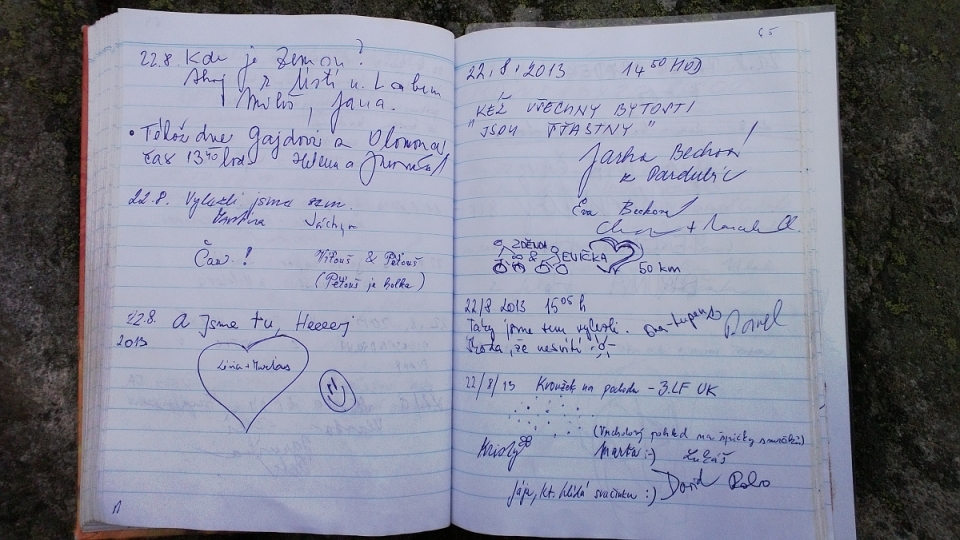 22.8. Kde je Zeman?
Ahoj z Ústí n. Labem
Miloš, Jana.
• Téhož dne Gajdovi a Olomouc
čas 13 40 hod. Helena a
22.8. Vylezli jsme sem.
Martina Jáchym
Čau!
Víťouš & Péťouš
(Péťouš je holka)
22.8. A jsme tu, Heeeej
2013
Livia + Markus
65
22.8.2013 14 50 HOD
"KÉŽ VŠECHNY BYTOSTI
JSOU ŠŤASTNY"
Jarka Bechová
z Pardubic
Eva Bechová
ZDENDA
& JEVIČKA
50 km
22/8 2013 15 05 h
Taky jsme sem vylezli. Pavel
Škoda, že nesvítí
22/8/13 Kroužek na pohodu - 3.LF UK
(Vrcholový pohled na špičky smrčků)
Kristý Martin :-) Lukáš
Jája, kt. hlídá svačinku :) David